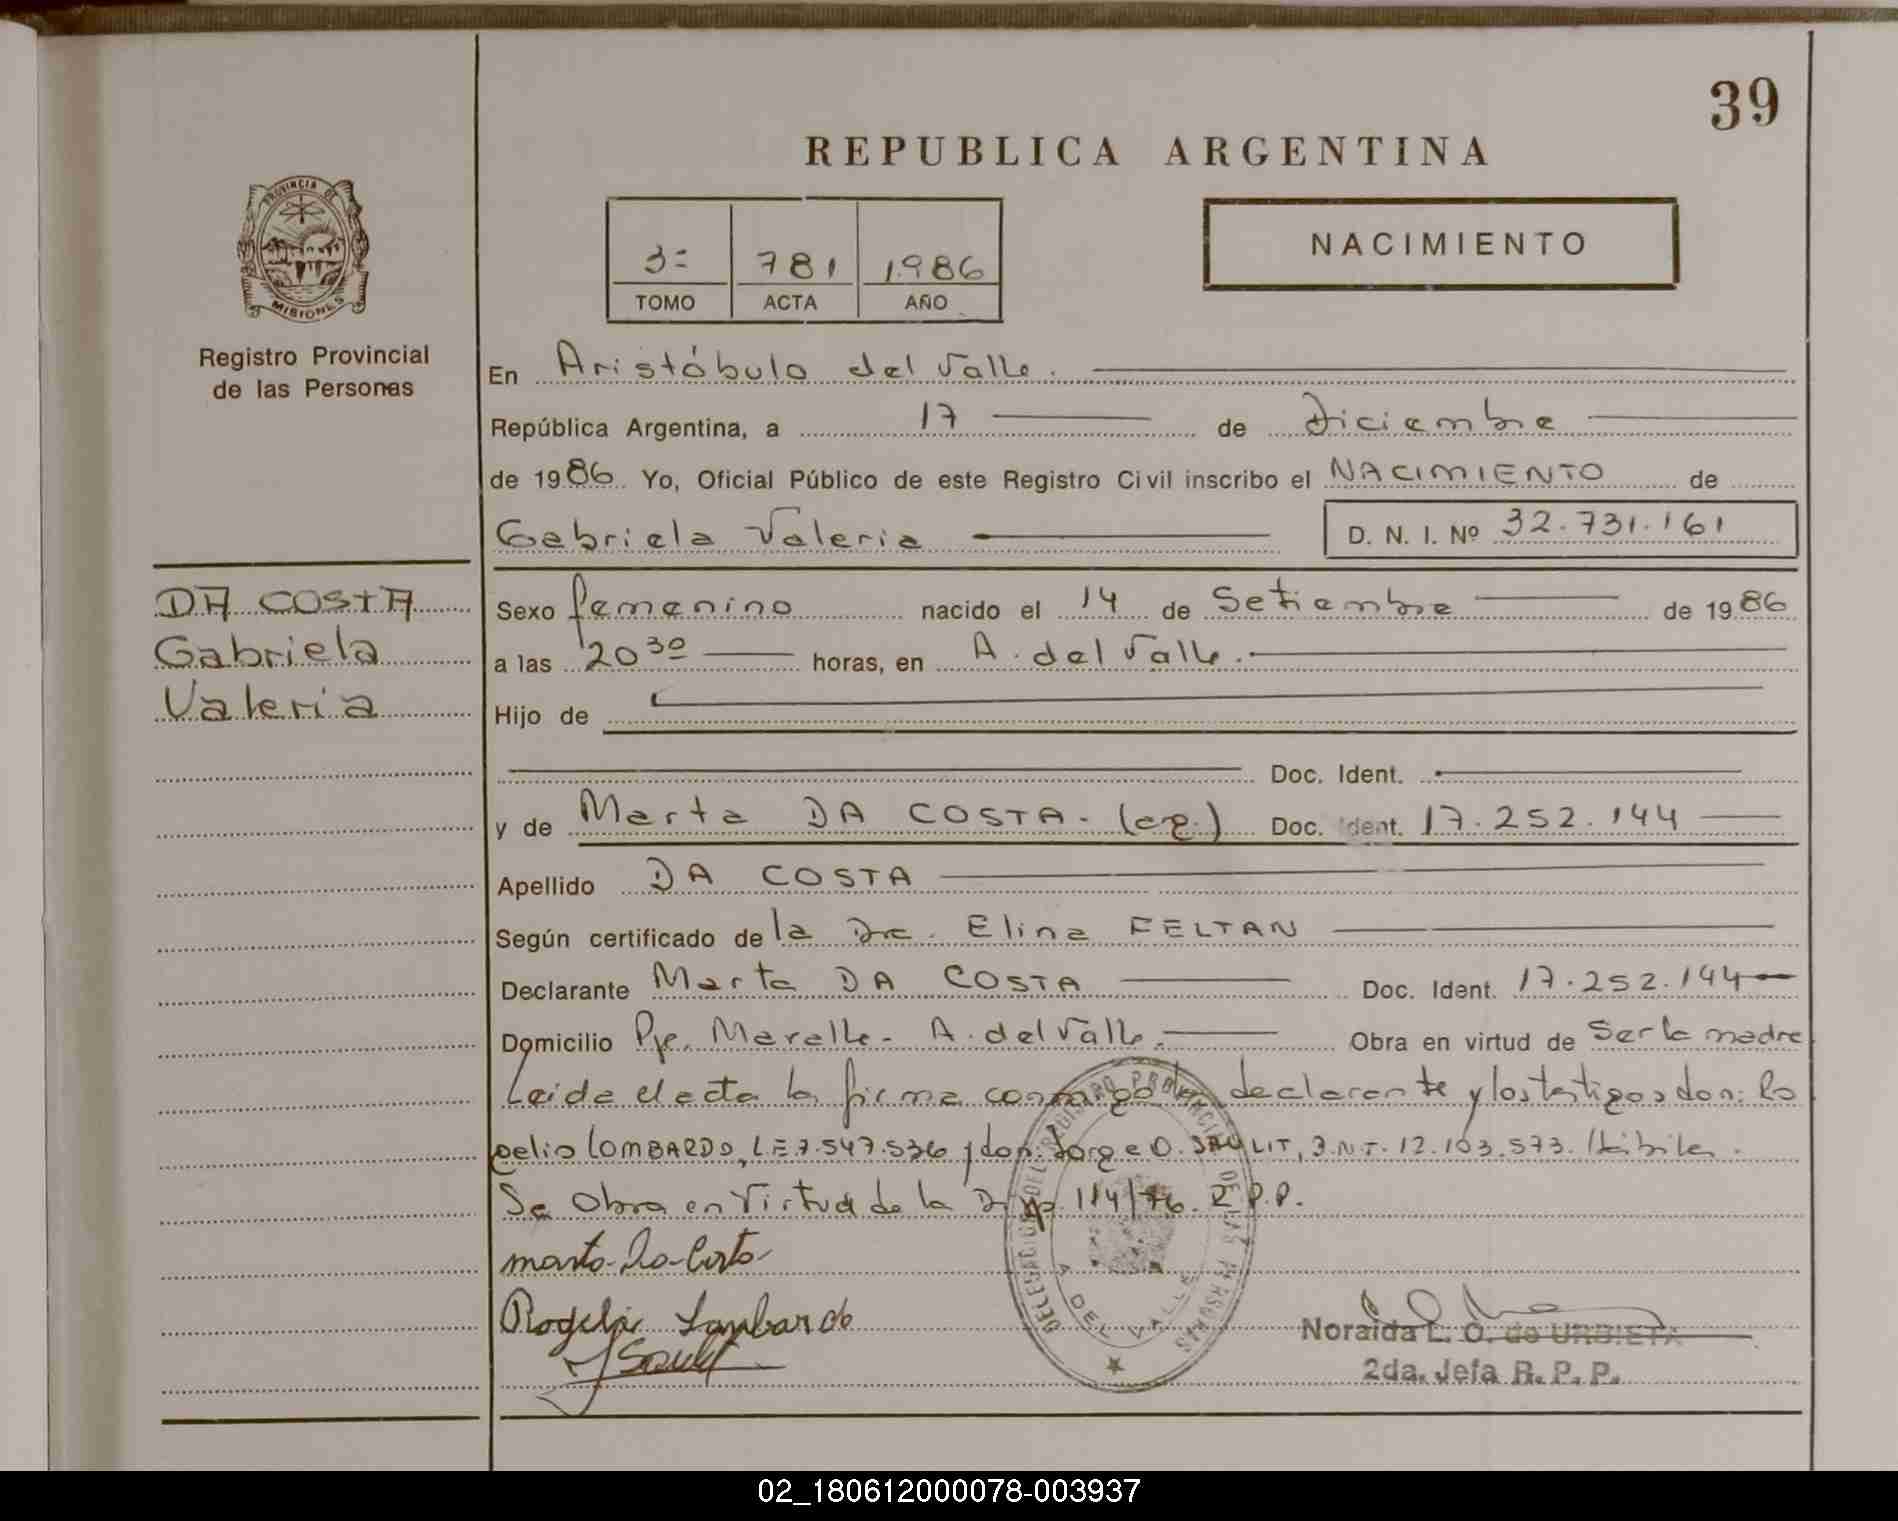 39
REPUBLICA ARGENTINA
PROVINCIA DE
MISIONES
Registro Provincial
de las Personas
3= 781 1.986
TOMO ACTA AÑO
NACIMIENTO
En Aristóbulo del Valle.
República Argentina, a 17 de Diciembre
de 1986. Yo, Oficial Público de este Registro Civil inscribo el NACIMIENTO de
Gabriela Valeria D. N. I. Nº 32.731.161
DA COSTA
Gabriela
Valeria
Sexo femenino nacido el 14 de Setiembre de 1986
a las 20 30 horas, en A. del Valle.
Hijo de
Doc. Ident.
y de Marta DA COSTA. (ag.) Doc. Ident. 17.252.144
Apellido DA COSTA
Según certificado de la Dra. Elina FELTAN
Declarante Marta DA COSTA Doc. Ident. 17.252.144
Domicilio Pje. Maralle - A. del Valle. Obra en virtud de Ser la madre
Leida el acta la firma conmigo la declarante y los testigos don: Ro
gelio LOMBARDO, L.E 7.547.536 y don: Jorge O. SAULIT, D.N.I. 12.103.573. Hábiles.
Se Obra en Virtud de la Disp. 114/76. R.P.P.
marta Da Costa
Rogelio Lombardo
J Saulit
DELEGACION DEL REGISTRO PROVINCIAL DE LAS PERSONAS
A. DEL VALLE
Noraida L. O. de URBIETA
2da. Jefa R. P. P.
02_180612000078-003937